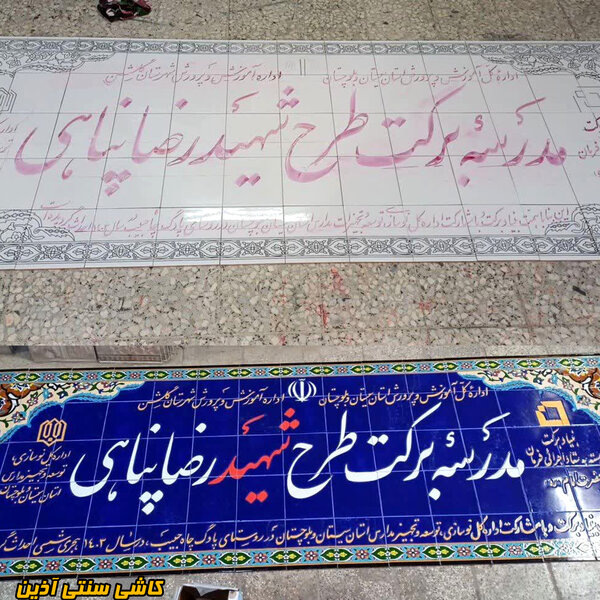 اداره کل آموزش و پرورش استان سیستان و بلوچستان
اداره آموزش و پرورش شهرستان گلشن
مدرسه برکت طرح شهید رضا پناهی
اداره کل آموزش و پرورش استان سیستان و بلوچستان
اداره آموزش و پرورش شهرستان گلشن
بنیاد برکت
ستاد اجرائی فرمان
مدرسه برکت طرح شهید رضا پناهی
اداره کل نوسازی،
توسعه و تجهیز مدارس
استان سیستان و بلوچستان
برکت و با مشارکت اداره کل نوسازی، توسعه و تجهیز مدارس استان سیستان و بلوچستان در روستای پادگ چاه حبیب، در سال ۱۴۰۲ هجری شمسی احداث
کاشی سنتی آذین